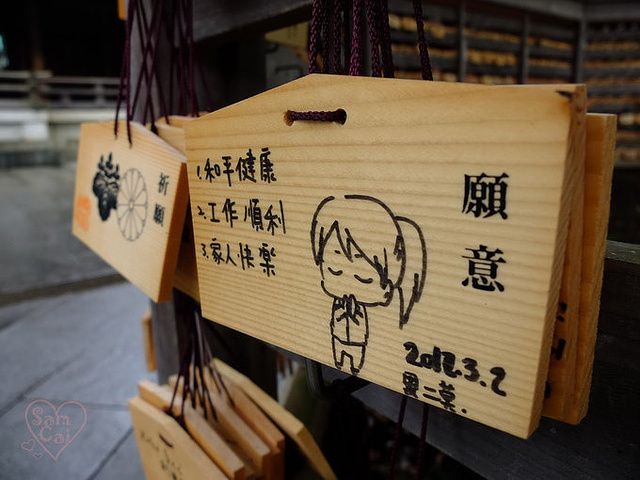 祈願
1.和平健康
2.工作順利
3.家人快樂
願意
2012.3.2
Sam
Cat